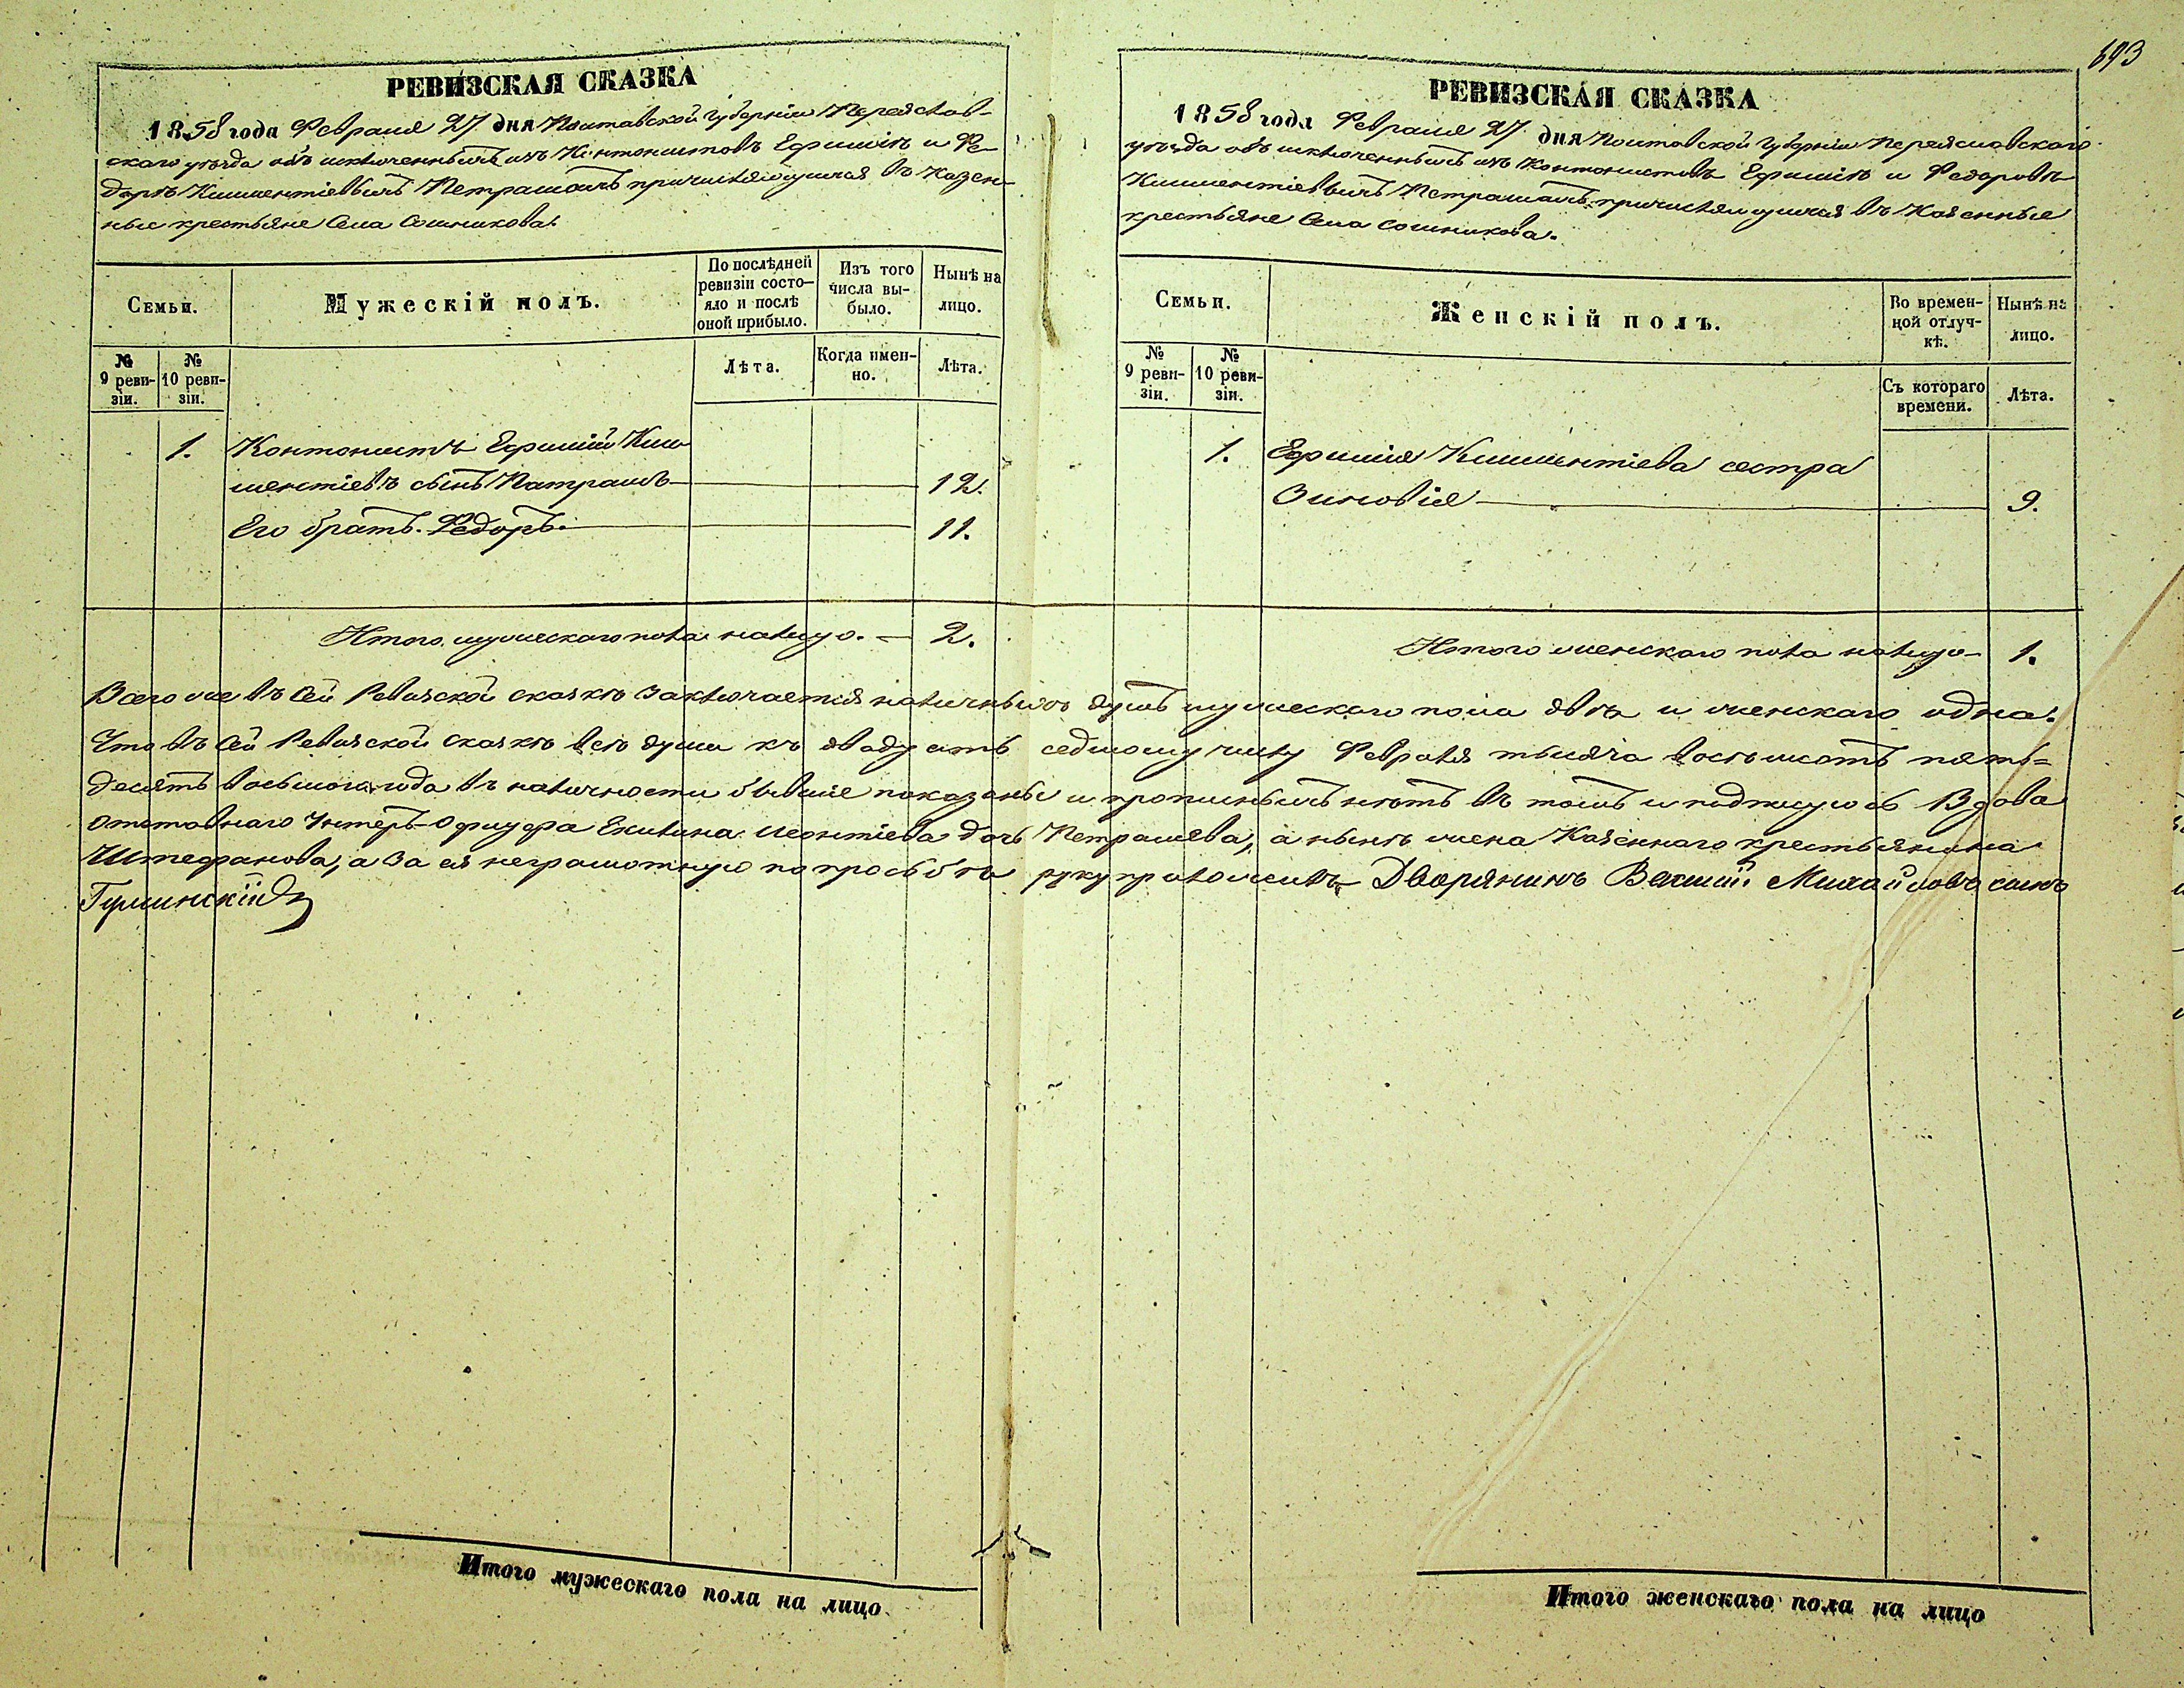 693
РЕВИЗСКАЯ СКАЗКА
1858 года Февраля 27 дня Полтавской Губерніи Переяслав-
скаго уѣзда объ исключенныхъ изъ Контонистовъ Ефиміѣ и Ѳе-
дорѣ Климентіевыхъ Петрашахъ причисляющихся въ Казен-
ные крестьяне Села Сошникова.
Семьи.
Мужескій полъ.
По послѣдней
ревизіи состо-
яло и послѣ
оной прибыло.
Изъ того
числа вы-
было.
Нынѣ на
лицо.
№
9 реви-
зіи.
№
10 реви-
зіи.
Лѣта.
Когда имен-
но.
Лѣта.
1. Контонистъ Ефимій Кли-
ментіевъ сынъ Петрашъ 12.
Его братъ Ѳедоръ 11.
Итого мужескаго пола налицо. — 2.
РЕВИЗСКАЯ СКАЗКА
1858 года Февраля 27 дня Полтавской Губерніи Переяславскаго
уѣзда объ исключенныхъ изъ Контонистовъ Ефиміѣ и Ѳедорѣ
Климентіевыхъ Петрашахъ причисляющихся въ Казенные
крестьяне Села Сошникова.
Семьи.
Женскій полъ.
Во времен-
ной отлуч-
кѣ.
Нынѣ на
лицо.
№
9 реви-
зіи.
№
10 реви-
зіи.
Съ котораго
времени.
Лѣта.
1. Ефимія Климентіева сестра
Зиновія 9.
Итого женскаго пола налицо — 1.
Всего же въ сей Ревизской сказкѣ заключается наличныхъ душъ мужескаго пола двѣ и женскаго одна.
Что въ сей Ревизской сказкѣ всѣ души къ двадцать седмому числу Февраля тысяча восемьсотъ пять-
десятъ восьмого года въ наличности бывшіе показаны и прописныхъ нѣтъ въ томъ и подписуюсь Вдова
отставнаго Унтеръ-Офицера Акилина Леонтіева дочь Петрашева, а нынѣ жена Казеннаго крестьянина
Штефанова, а за ея неграмотную по просьбѣ руку приложилъ Дворянинъ Василій Михайловъ сынъ
Гулинскій
Итого мужескаго пола на лицо
Итого женскаго пола на лицо